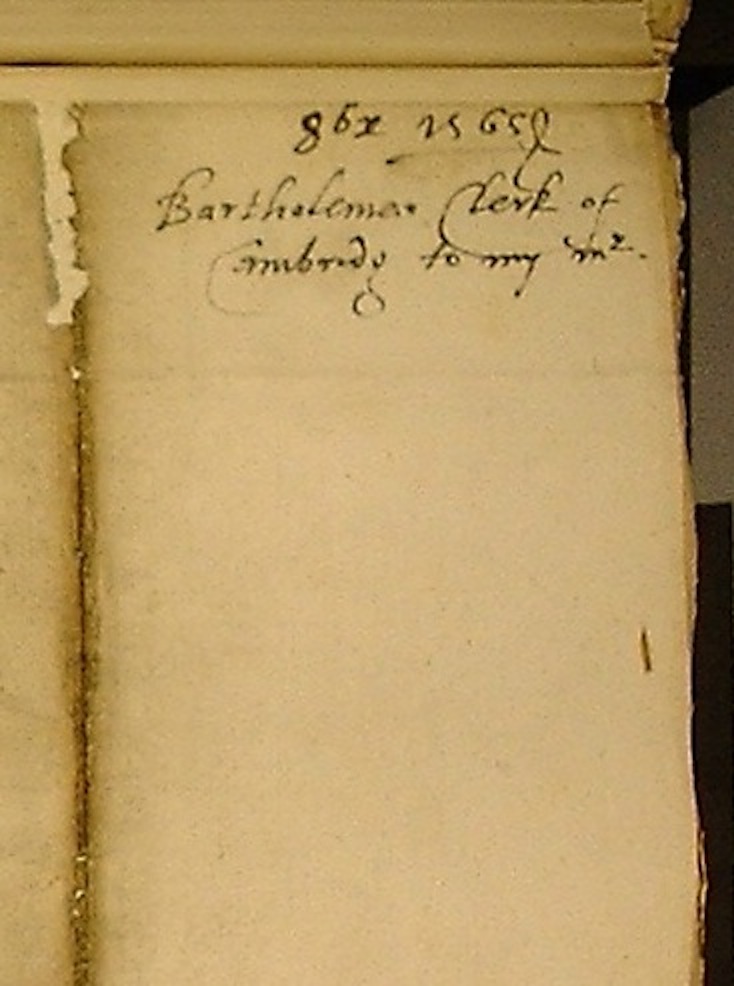 8br 1565
Bartholomew Clerk of
Cambridg to my mr.